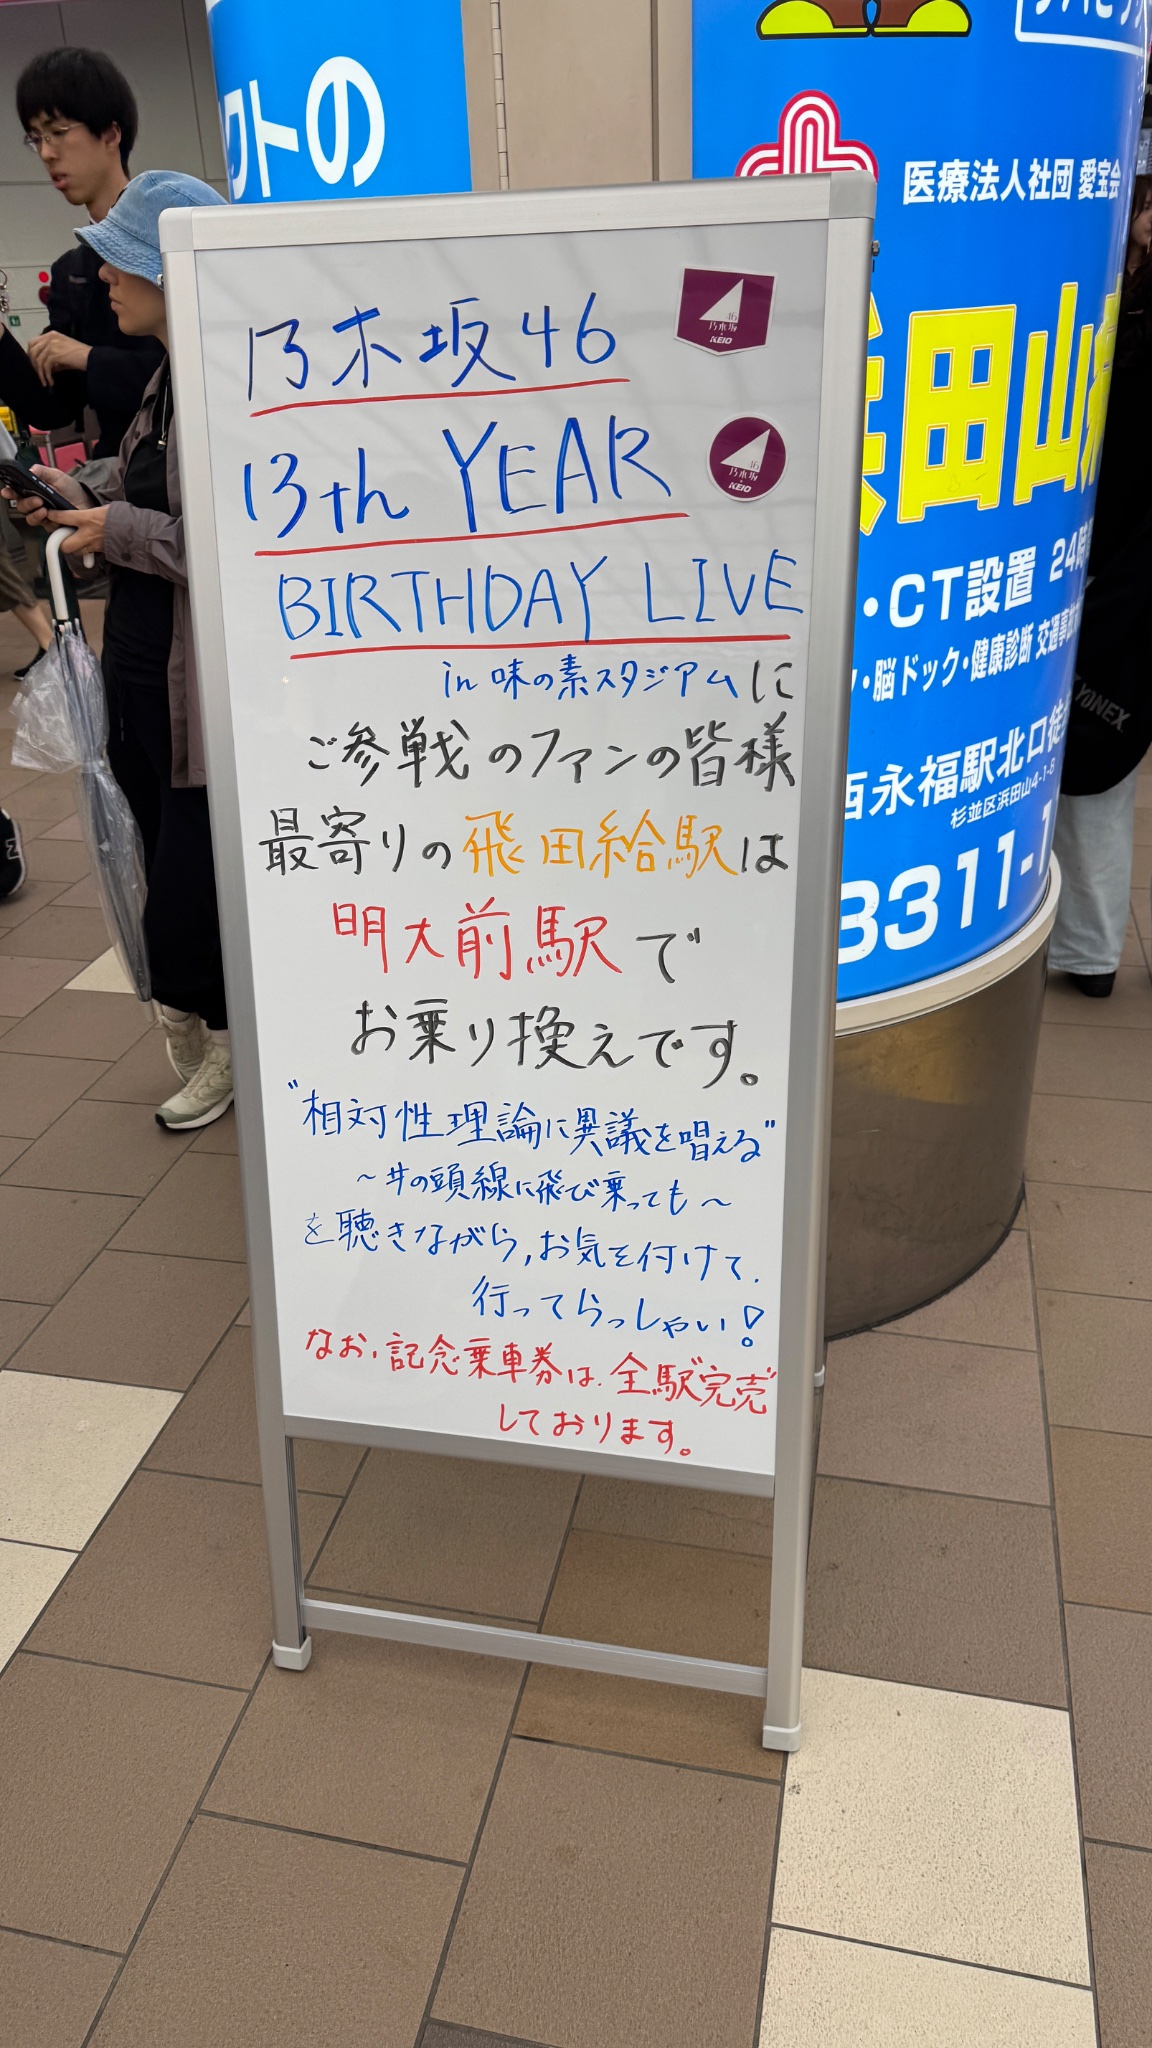 クトの
医療法人社団 愛宝会
田山
・CT設置 24時
・脳ドック・健康診断 交通事故
西永福駅北口徒
杉並区浜田山4-1-8
3311-1
YONEX
乃木坂46
13th YEAR
BIRTHDAY LIVE
in 味の素スタジアムに
ご参戦のファンの皆様
最寄りの飛田給駅は
明大前駅で
お乗り換えです。
"相対性理論に異議を唱える"
～井の頭線に飛び乗っても～
を聴きながら,お気を付けて
行ってらっしゃい!
なお、記念乗車券は、全駅"完売"
しております。
46
乃木坂
KEIO
46
乃木坂
KEIO